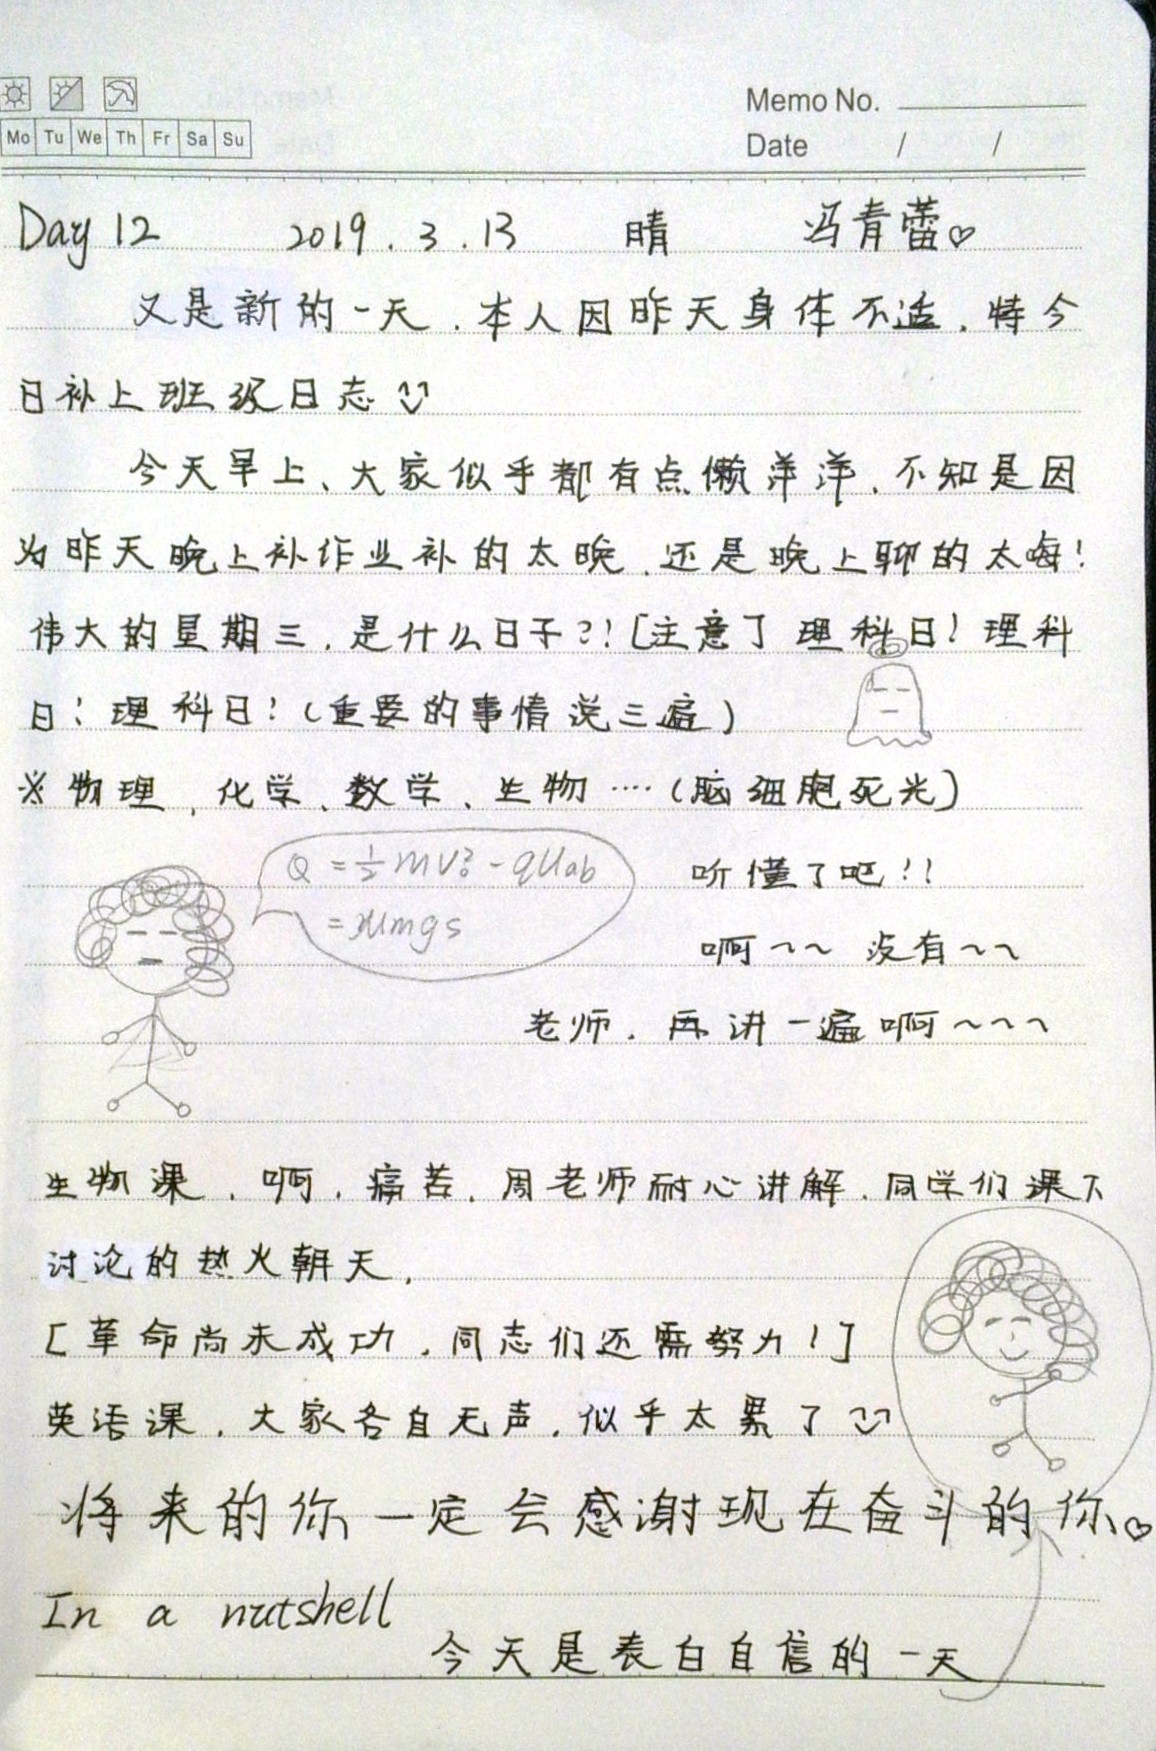 Memo No.
Mo Tu We Th Fr Sa Su
Date / /
Day 12 2019.3.13 晴 冯青蕾♡
又是新的一天，本人因昨天身体不适，特今
日补上班级日志
今天早上、大家似乎都有点懒洋洋，不知是因
为昨天晚上补作业补的太晚，还是晚上聊的太嗨！
伟大的星期三，是什么日子？！[注意了 理科日！理科
日！理科日！（重要的事情说三遍）
※物理，化学、数学、生物····（脑细胞死光）
Q=½mv₀²-qUab
=μmgs
听懂了吧！！
啊～～ 没有～～
老师，再讲一遍啊～～～
生物课，啊，痛苦，周老师耐心讲解，同学们课下
讨论的热火朝天，
[革命尚未成功，同志们还需努力！]
英语课，大家各自无声，似乎太累了
将来的你一定会感谢现在奋斗的你、♡
In a nutshell
今天是表白自信的一天